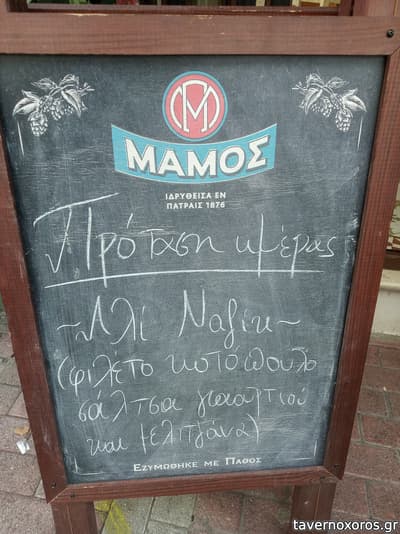 ΜΑΜΟΣ
ΙΔΡΥΘΕΙΣΑ ΕΝ
ΠΑΤΡΑΙΣ 1876
Πρόταση ημέρας
~Αλί Ναζίκ~
(φιλέτο κοτόπουλο
σάλτσα γιαουρτιού
και μελιτζάνα)
ΕΖΥΜΩΘΗΚΕ ΜΕ ΠΑΘΟΣ
tavernoxoros.gr